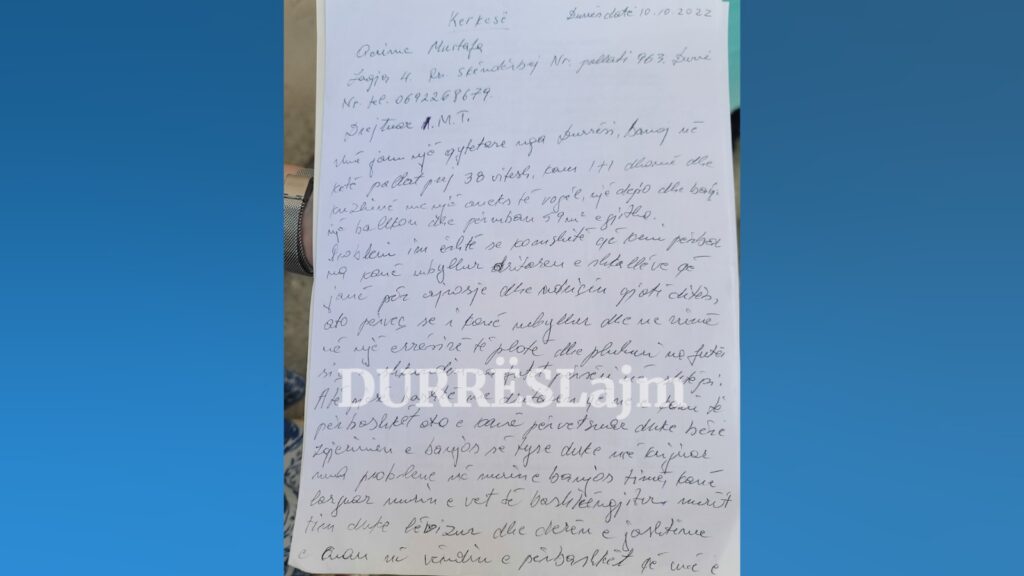 Kerkesë
Durrës datë 10.10.2022
Mustafa
Lagjja 4. Rr. Skënderbej Nr. pallati 963. Durrë
Nr. tel. 0692268679.
Drejtuar M.T.
Unë jam një qytetare nga Durrësi, banoj në
këtë pallat prej 38 vitesh, kam 1+1 dhomë dhe
kuzhinë me një aneks të vogël, një depo dhe banjo
një ballkon dhe përmban 59 m² e gjitha.
Problemi im është se komshitë që kemi përbri
na kanë mbyllur dritaren e shkallëve që
janë për ajrosje dhe ndriçim gjatë ditës,
ato përveç se i kanë mbyllur dhe ne rrimë
në një errësirë të plotë dhe pluhuri na futet
DURRËSLajm
përbashkët ato e kanë përvetsuar duke bërë
zgjerimin e banjos së tyre duke më krijuar
mua probleme në murin e banjos time, kanë
larguar murin e vet të bashkëngjitur murit
tim duke lëvizur dhe derën e jashtme
e çuan në vëndin e përbashkët që më ë